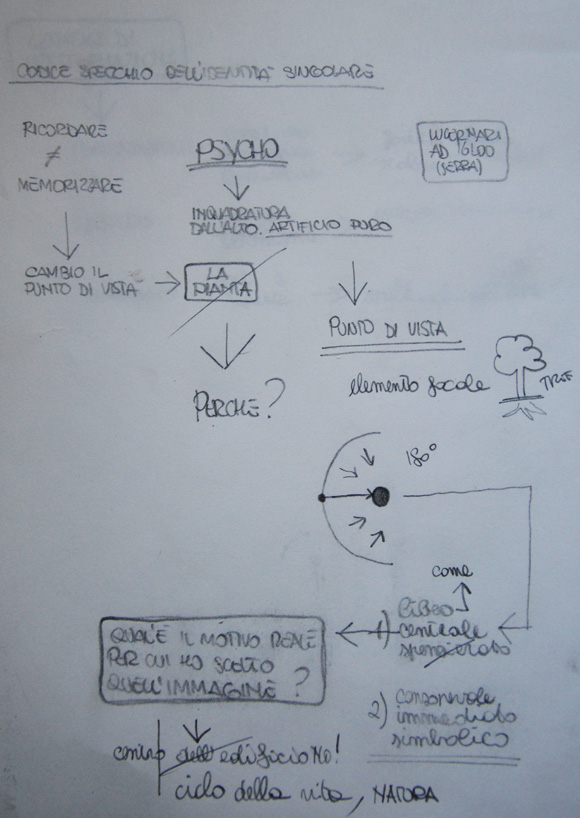 CODICE SPECCHIO DELL'IDENTITÀ SINGOLARE
RICORDARE
≠
MEMORIZZARE
PSYCHO
LUCERNARI
AD IGLOO
(SERRA)
INQUADRATURA
DALL'ALTO. ARTIFICIO PURO
CAMBIO IL
PUNTO DI VISTA
LA
PIANTA
PUNTO DI VISTA
PERCHE?
elemento focale
TREE
180°
come
1) libero
centrale
2) consapevole
immediato
simbolico
QUAL'È IL MOTIVO REALE
PER CUI HO SCELTO
QUELL'IMMAGINE?
centro dell'edificio No!
ciclo della vita, NATURA